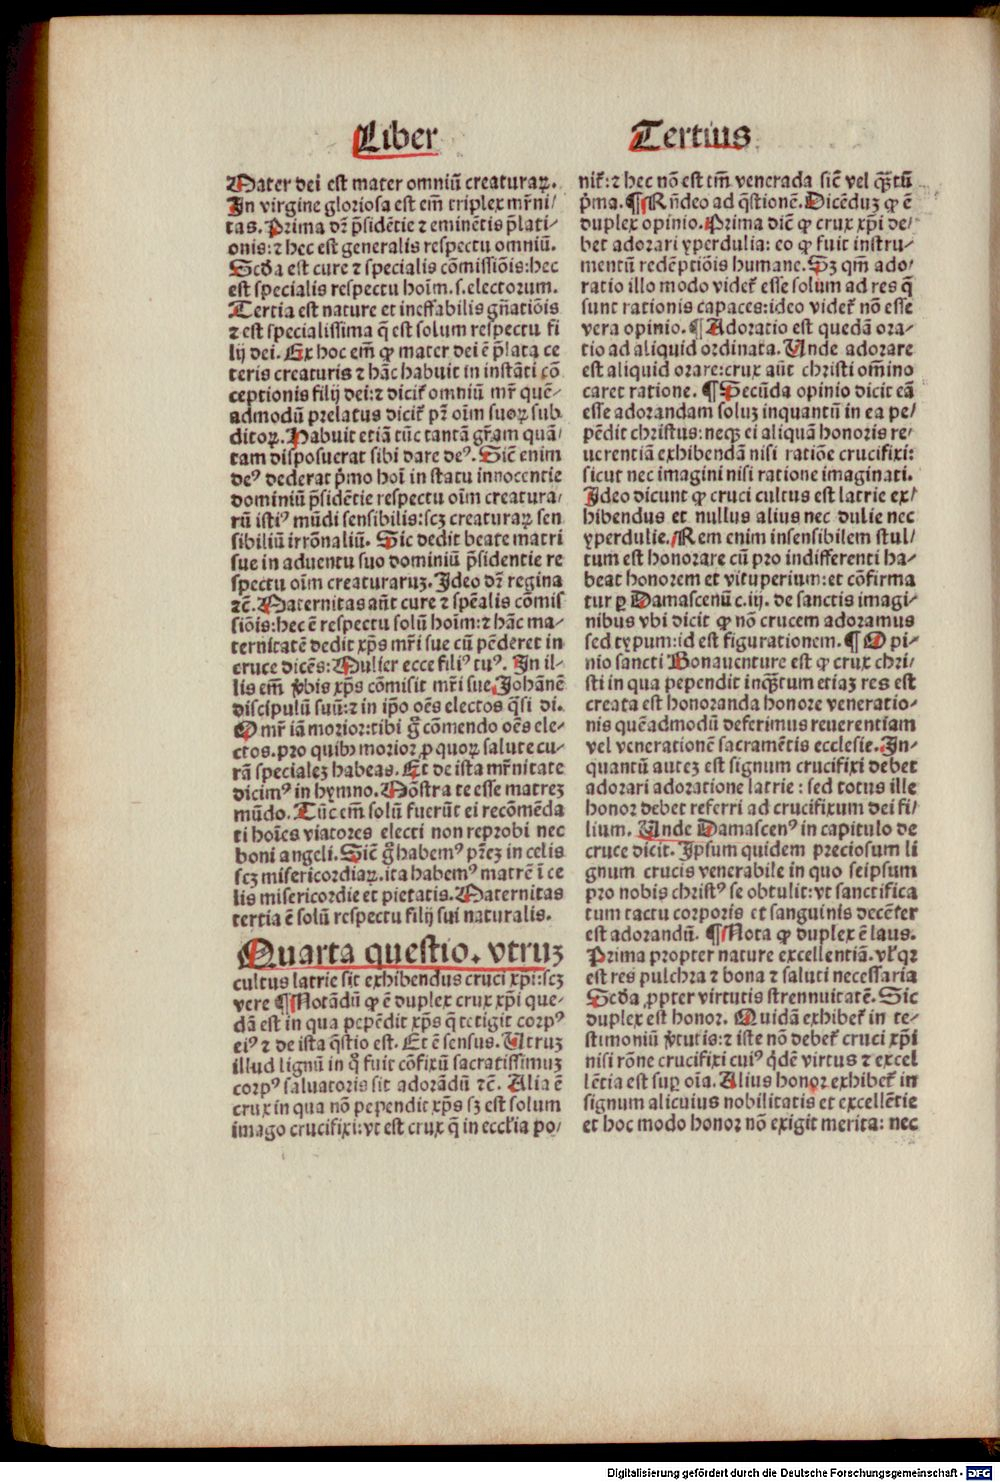 Liber Tertius
Mater dei est mater omniū creaturaꝝ.
In virgine gloriosa est em̄ triplex mr̄ni⸗
tas. Prima dr̄ p̄sidētie ⁊ eminētis p̄lati⸗
onis: ⁊ hec est generalis respectu omniū.
Scd̄a est cure ⁊ specialis cōmissiōis: hec
est specialis respectu hoīm .s. electorum.
Tertia est nature et ineffabilis gn̄atiōis
⁊ est specialissima q̄ est solum respectu fi
lij dei. Ex hoc em̄ ꝙ mater dei ē p̄lata ce
teris creaturis ⁊ hāc habuit in instāti cō
ceptionis filij dei: ⁊ dicit᷑ omniū mr̄ quē⸗
admodū prelatus dicit᷑ pr̄ oīm suoꝝ sub
ditoꝝ. Habuit etiā tūc tantā gr̄am quā⸗
tam disposuerat sibi dare deꝰ. Sic̄ enim
deꝰ dederat p̄mo hoī in statu innocentie
dominiū p̄sidētie respectu oīm creatura⸗
rū istiꝰ mūdi sensibilis: scꝫ creaturaꝝ sen
sibiliū irrōnaliū. Sic dedit beate matri
sue in aduentu suo dominiū p̄sidentie re
spectu oīm creaturaruꝫ. Ideo dr̄ regina
⁊c̄. Maternitas aūt cure ⁊ spēalis cōmis
siōis: hec ē respectu solū hoīm: ⁊ hāc ma⸗
ternitatē dedit xp̄s mr̄i sue cū pēderet in
cruce dicēs: Mulier ecce filiꝰ tuꝰ. In il⸗
lis em̄ v̄bis xp̄s cōmisit mr̄i sue Johānē
discipulū suū: ⁊ in ip̄o oēs electos q̄si di.
O mr̄ iā morior: tibi gͦ cōmendo oēs ele⸗
ctos. pro quibꝫ morior ꝓ quoꝝ salute cu⸗
rā specialeꝫ habeas. Et de ista mr̄nitate
dicimꝰ in hymno. Mōstra te esse matreꝫ
mūdo. Tūc em̄ solū fuerūt ei recōmēda
ti hoīes viatores electi non reprobi nec
boni angeli. Sic̄ gͦ habemꝰ pr̄eꝫ in celis
scꝫ misericordiaꝝ. ita habemꝰ matrē ī ce
lis misericordie et pietatis. Maternitas
tertia ē solū respectu filij sui naturalis.
Quarta questio. vtruꝫ
cultus latrie sit exhibendus cruci xp̄i: scꝫ
vere ¶ Notādū ꝙ ē duplex crux xp̄i que⸗
dā est in qua pepēdit xp̄s q̄ tetigit corpꝰ
eiꝰ ⁊ de ista q̄stio est. Et ē sensus. Utruꝫ
illud lignū in qͦ fuit cōfixū sacratissimuꝫ
corpꝰ saluatoris sit adorādū ⁊c̄. Alia ē
crux in qua nō pependit xp̄s sꝫ est solum
imago crucifixi: vt est crux q̄ in eccl̄ia po⸗
nit᷑: ⁊ hec nō est tm̄ venerada sic̄ vel qͣꝫtū
p̄ma. ¶ Rn̄deo ad q̄stionē. Dicēduꝫ ꝙ ē
duplex opinio. Prima dic̄ ꝙ crux xp̄i de⸗
bet adorari yperdulia: eo ꝙ fuit instru⸗
mentū redēptiōis humane. Sꝫ qm̄ ado⸗
ratio illo modo videt᷑ esse solum ad res q̄
sunt rationis capaces: ideo videt᷑ nō esse
vera opinio. ¶ Adoratio est quedā ora⸗
tio ad aliquid ordinata. Unde adorare
est aliquid orare: crux aūt christi om̄ino
caret ratione. ¶ Secūda opinio dicit eā
esse adorandam soluꝫ inquantū in ea pe⸗
pēdit christus: neqꝫ ei aliquā honoris re⸗
uerentiā exhibendā nisi ratiōe crucifixi:
sicut nec imagini nisi ratione imaginati.
Ideo dicunt ꝙ cruci cultus est latrie ex⸗
hibendus et nullus alius nec dulie nec
yperdulie. Rem enim insensibilem stul⸗
tum est honorare cū pro indifferenti ha⸗
beat honorem et vituperium: et cōfirma
tur ꝑ Damascenū c. iij. de sanctis imagi⸗
nibus vbi dicit ꝙ nō crucem adoramus
sed typum: id est figurationem. ¶ Opi⸗
nio sancti Bonauenture est ꝙ crux chri⸗
sti in qua pependit inqͣꝫtum etiaꝫ res est
creata est honoranda honore veneratio⸗
nis quēadmodū deferimus reuerentiam
vel venerationē sacramētis ecclesie. In⸗
quantū auteꝫ est signum crucifixi debet
adorari adoratione latrie: sed totus ille
honor debet referri ad crucifixum dei fi⸗
lium. Unde Damascenꝰ in capitulo de
cruce dicit. Ipsum quidem preciosum li
gnum crucis venerabile in quo seipsum
pro nobis christꝰ se obtulit: vt sanctifica
tum tactu corporis et sanguinis decēter
est adorandū. ¶ Nota ꝙ duplex ē laus.
Prima propter nature excellentiā. vt᷑ qꝛ
est res pulchra ⁊ bona ⁊ saluti necessaria
Scd̄a ꝓpter virtutis strennuitatē. Sic
duplex est honor. Quidā exhibet᷑ in te⸗
stimoniū v̄tutis: ⁊ iste nō debet᷑ cruci xp̄i
nisi rōne crucifixi cuiꝰ q̇dē virtus ⁊ excel
lētia est suꝑ oīa. Alius honor exhibet᷑ in
signum alicuius nobilitatis et excellētie
et hoc modo honor nō exigit merita: nec
Digitalisierung gefördert durch die Deutsche Forschungsgemeinschaft - DFG